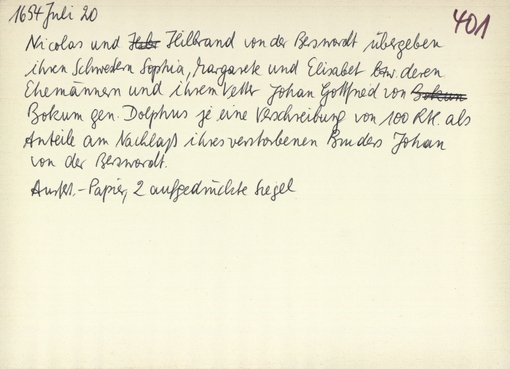 1654 Juli 20
401
Nicolas und Hilbrand von der Berswordt übergeben
ihren Schwestern Sophia, Margarete und Elisabet bzw. deren
Ehemännern und ihrem Vetter Johan Gottfried von Bokum
Bokum gen. Dolphus je eine Verschreibung von 100 Rtl. als
Anteile am Nachlaß ihres verstorbenen Bruders Johan
von der Berswordt.
Ausf.-Papier, 2 aufgedrückte Siegel